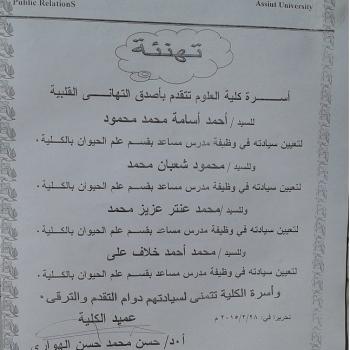 Public RelationS
Assiut University
تهنئة
أسرة كلية العلوم تتقدم بأصدق التهانى القلبية
للسيد / أحمد أسامة محمد محمود
لتعيين سيادته في وظيفة مدرس مساعد بقسم علم الحيوان بالكلية .
وللسيد / محمود شعبان محمد
لتعيين سيادته في وظيفة مدرس مساعد بقسم علم الحيوان بالكلية .
وللسيد /محمد عنتر عزيز محمد
لتعيين سيادته في وظيفة مدرس مساعد بقسم علم الحيوان بالكلية .
وللسيد / محمد أحمد خلاف على
لتعيين سيادته في وظيفة مدرس مساعد بقسم علم الحيوان بالكلية .
وأسرة الكلية تتمنى لسيادتهم دوام التقدم والترقى "
تحريرا في: ٢٠١٥/٢/٢٨ م
عميد الكلية
أ.د/ حسن محمد حسن الهوارى